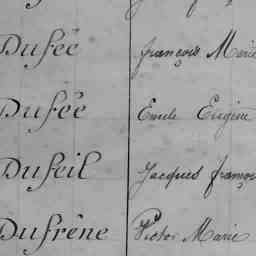 Dufée françois Marie
Dufée Emile Eugène
Dufeil Jacques franço
Dufrêne Victor Marie